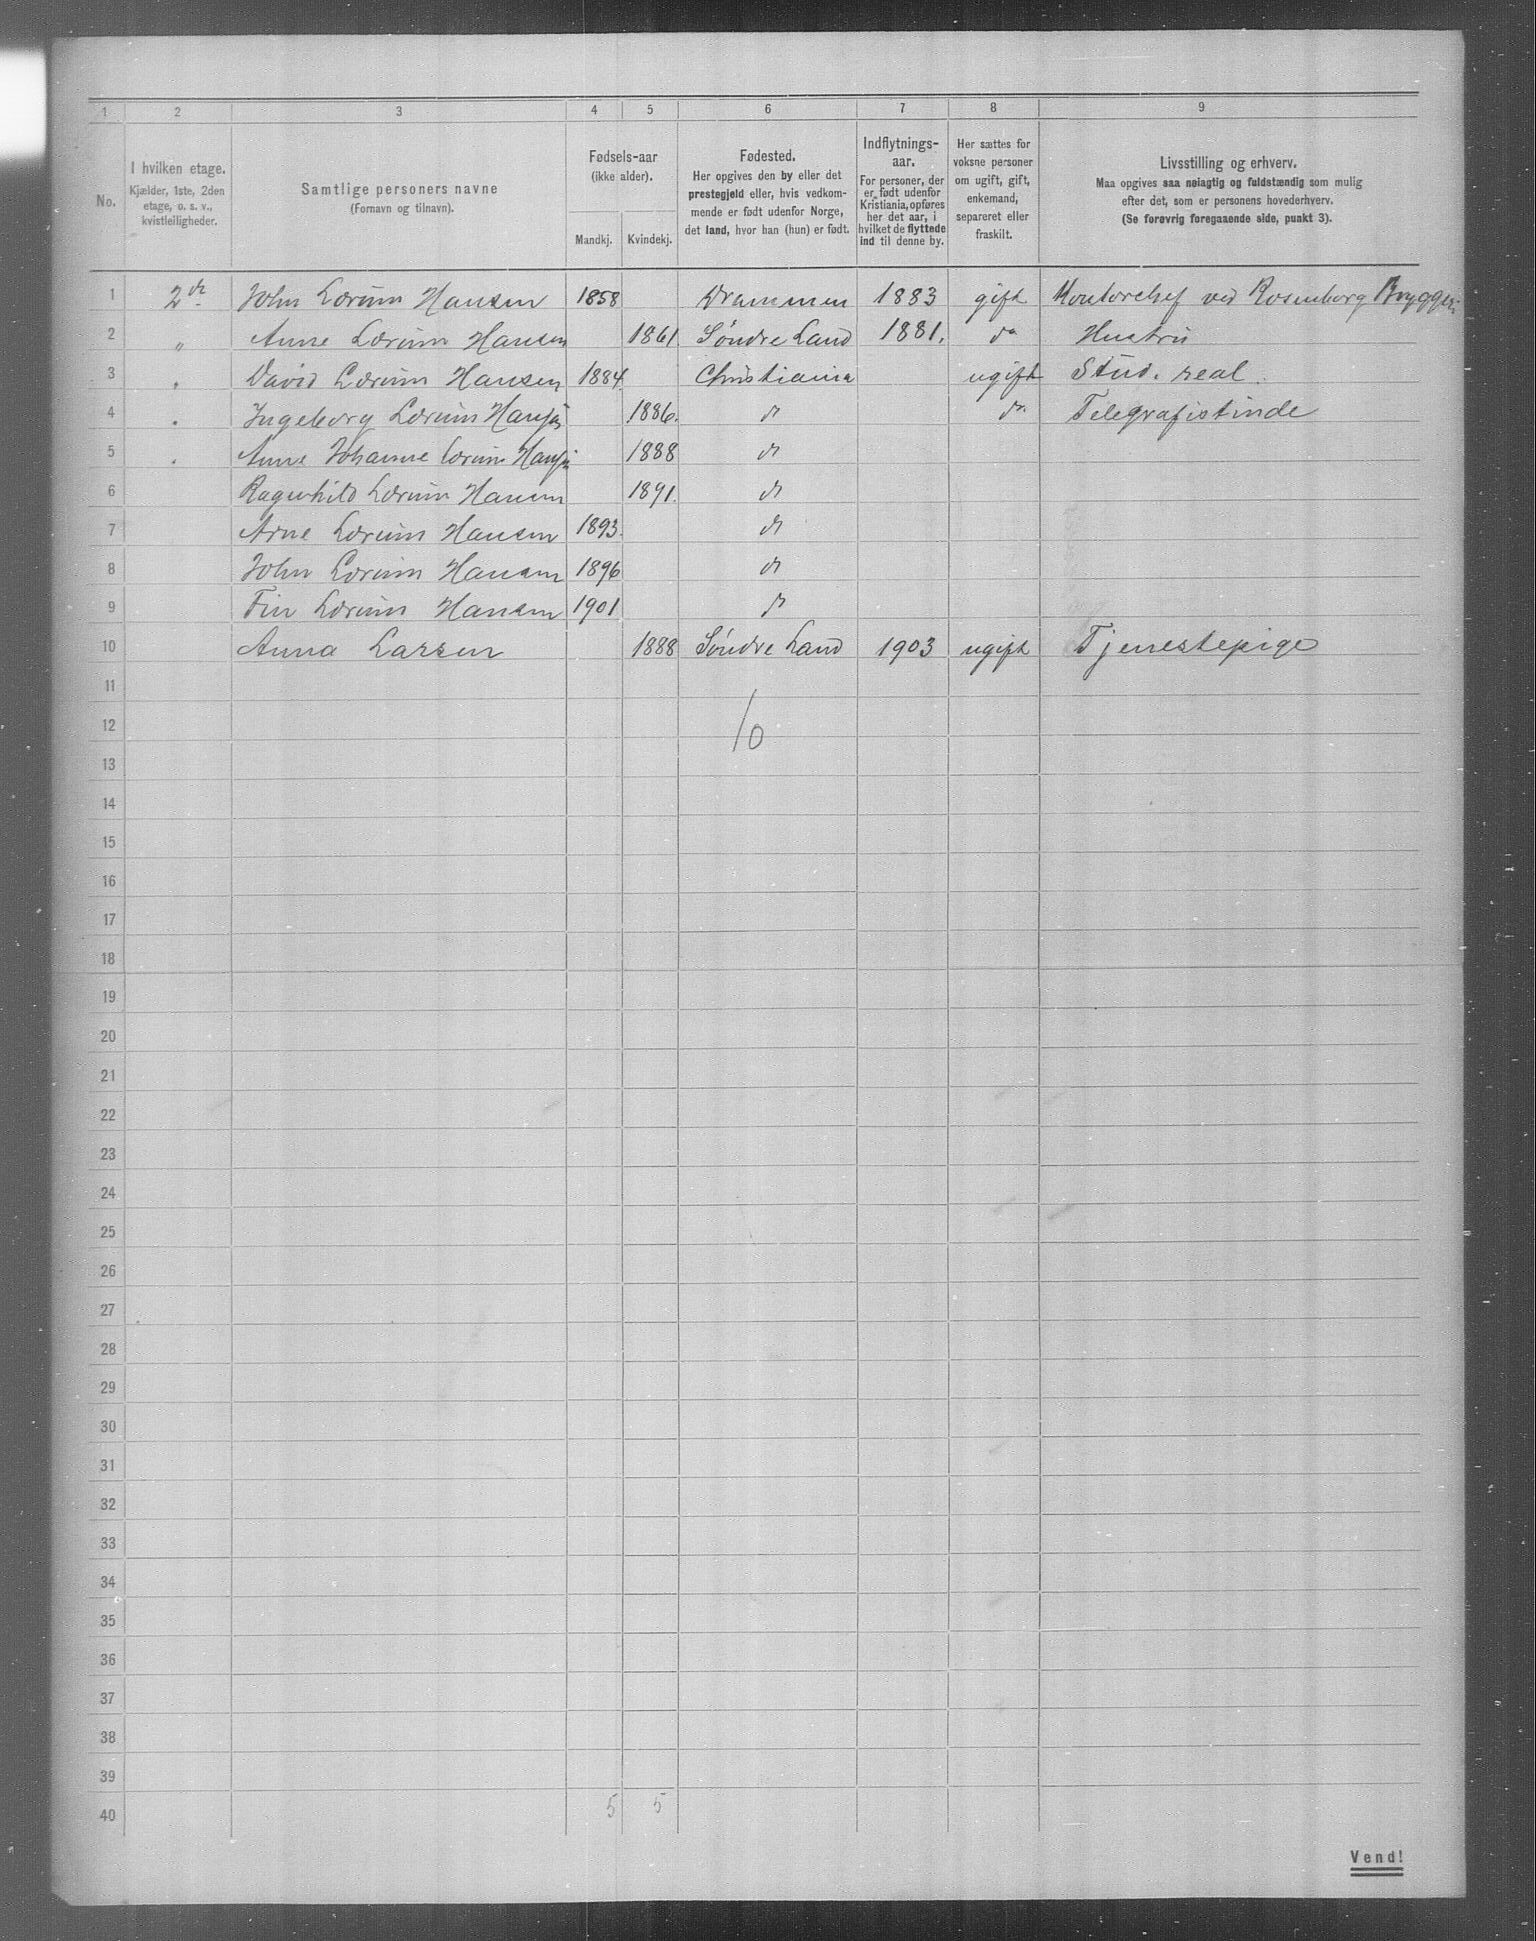 1 2 3 4 5 6 7 8 9
No.
I hvilken etage.
Kjælder, 1ste, 2den
etage, o. s. v.,
kvistleiligheder.
Samtlige personers navne
(Fornavn og tilnavn).
Fødsels-aar
(ikke alder).
Mandkj. Kvindekj.
Fødested.
Her opgives den by eller det
prestegjeld eller, hvis vedkom-
mende er født udenfor Norge,
det land, hvor han (hun) er født.
Indflytnings-
aar.
For personer, der
er født udenfor
Kristiania, opføres
her det aar, i
hvilket de flyttede
ind til denne by.
Her sættes for
voksne personer
om ugift, gift,
enkemand,
separeret eller
fraskilt.
Livsstilling og erhverv.
Maa opgives saa nøiagtig og fuldstændig som mulig
efter det, som er personens hovederhverv.
(Se forøvrig foregaaende side, punkt 3).
1 2den John Lærum Hansen 1858 Drammen 1883 gift Kontorchef ved Rosenborg Bryggeri
2 " Anne Lærum Hansen 1861 Søndre Land 1881. do Hustru
3 " David Lærum Hansen 1884. Christiania ugift Stud. real.
4 " Ingeborg Lærum Hansen 1886. do do Telegrafistinde
5 " Anne Johanne Lærum Hansen 1888 do
6 Ragnhild Lærum Hansen 1891. do
7 Arne Lærum Hansen 1893. do
8 John Lærum Hansen 1896 do
9 Fin Lærum Hansen 1901 do
10 Anna Larsen 1888 Søndre Land 1903 ugift Tjenestepige
11
12 10
13
14
15
16
17
18
19
20
21
22
23
24
25
26
27
28
29
30
31
32
33
34
35
36
37
38
39
40 5 5
Vend!